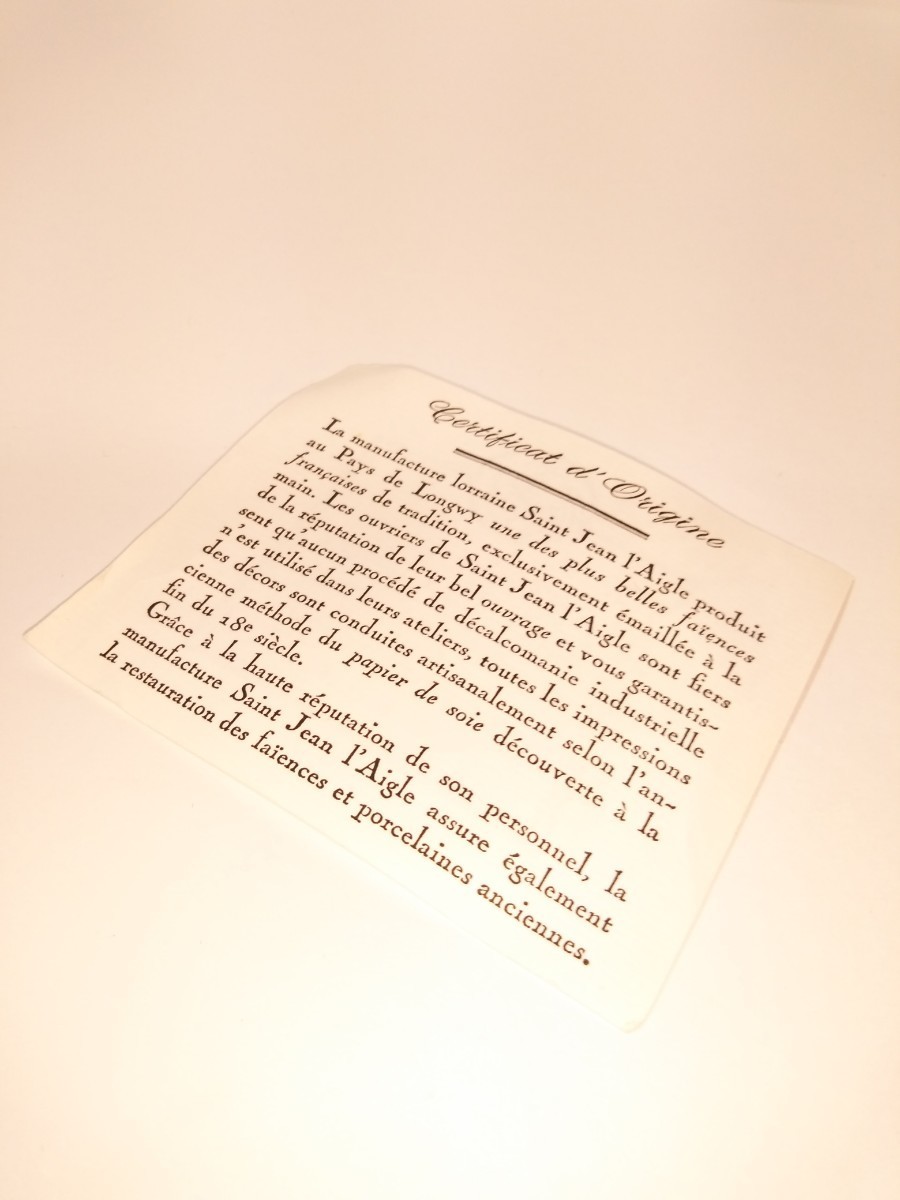 Certificat d'Origine
La manufacture lorraine Saint Jean l'Aigle produit
au Pays de Longwy une des plus belles faïences
françaises de tradition, exclusivement émaillée à la
main. Les ouvriers de Saint Jean l'Aigle sont fiers
de la réputation de leur bel ouvrage et vous garantis-
sent qu'aucun procédé de décalcomanie industrielle
n'est utilisé dans leurs ateliers, toutes les impressions
des décors sont conduites artisanalement selon l'an-
cienne méthode du papier de soie découverte à la
fin du 18e siècle.
Grâce à la haute réputation de son personnel, la
manufacture Saint Jean l'Aigle assure également
la restauration des faïences et porcelaines anciennes.